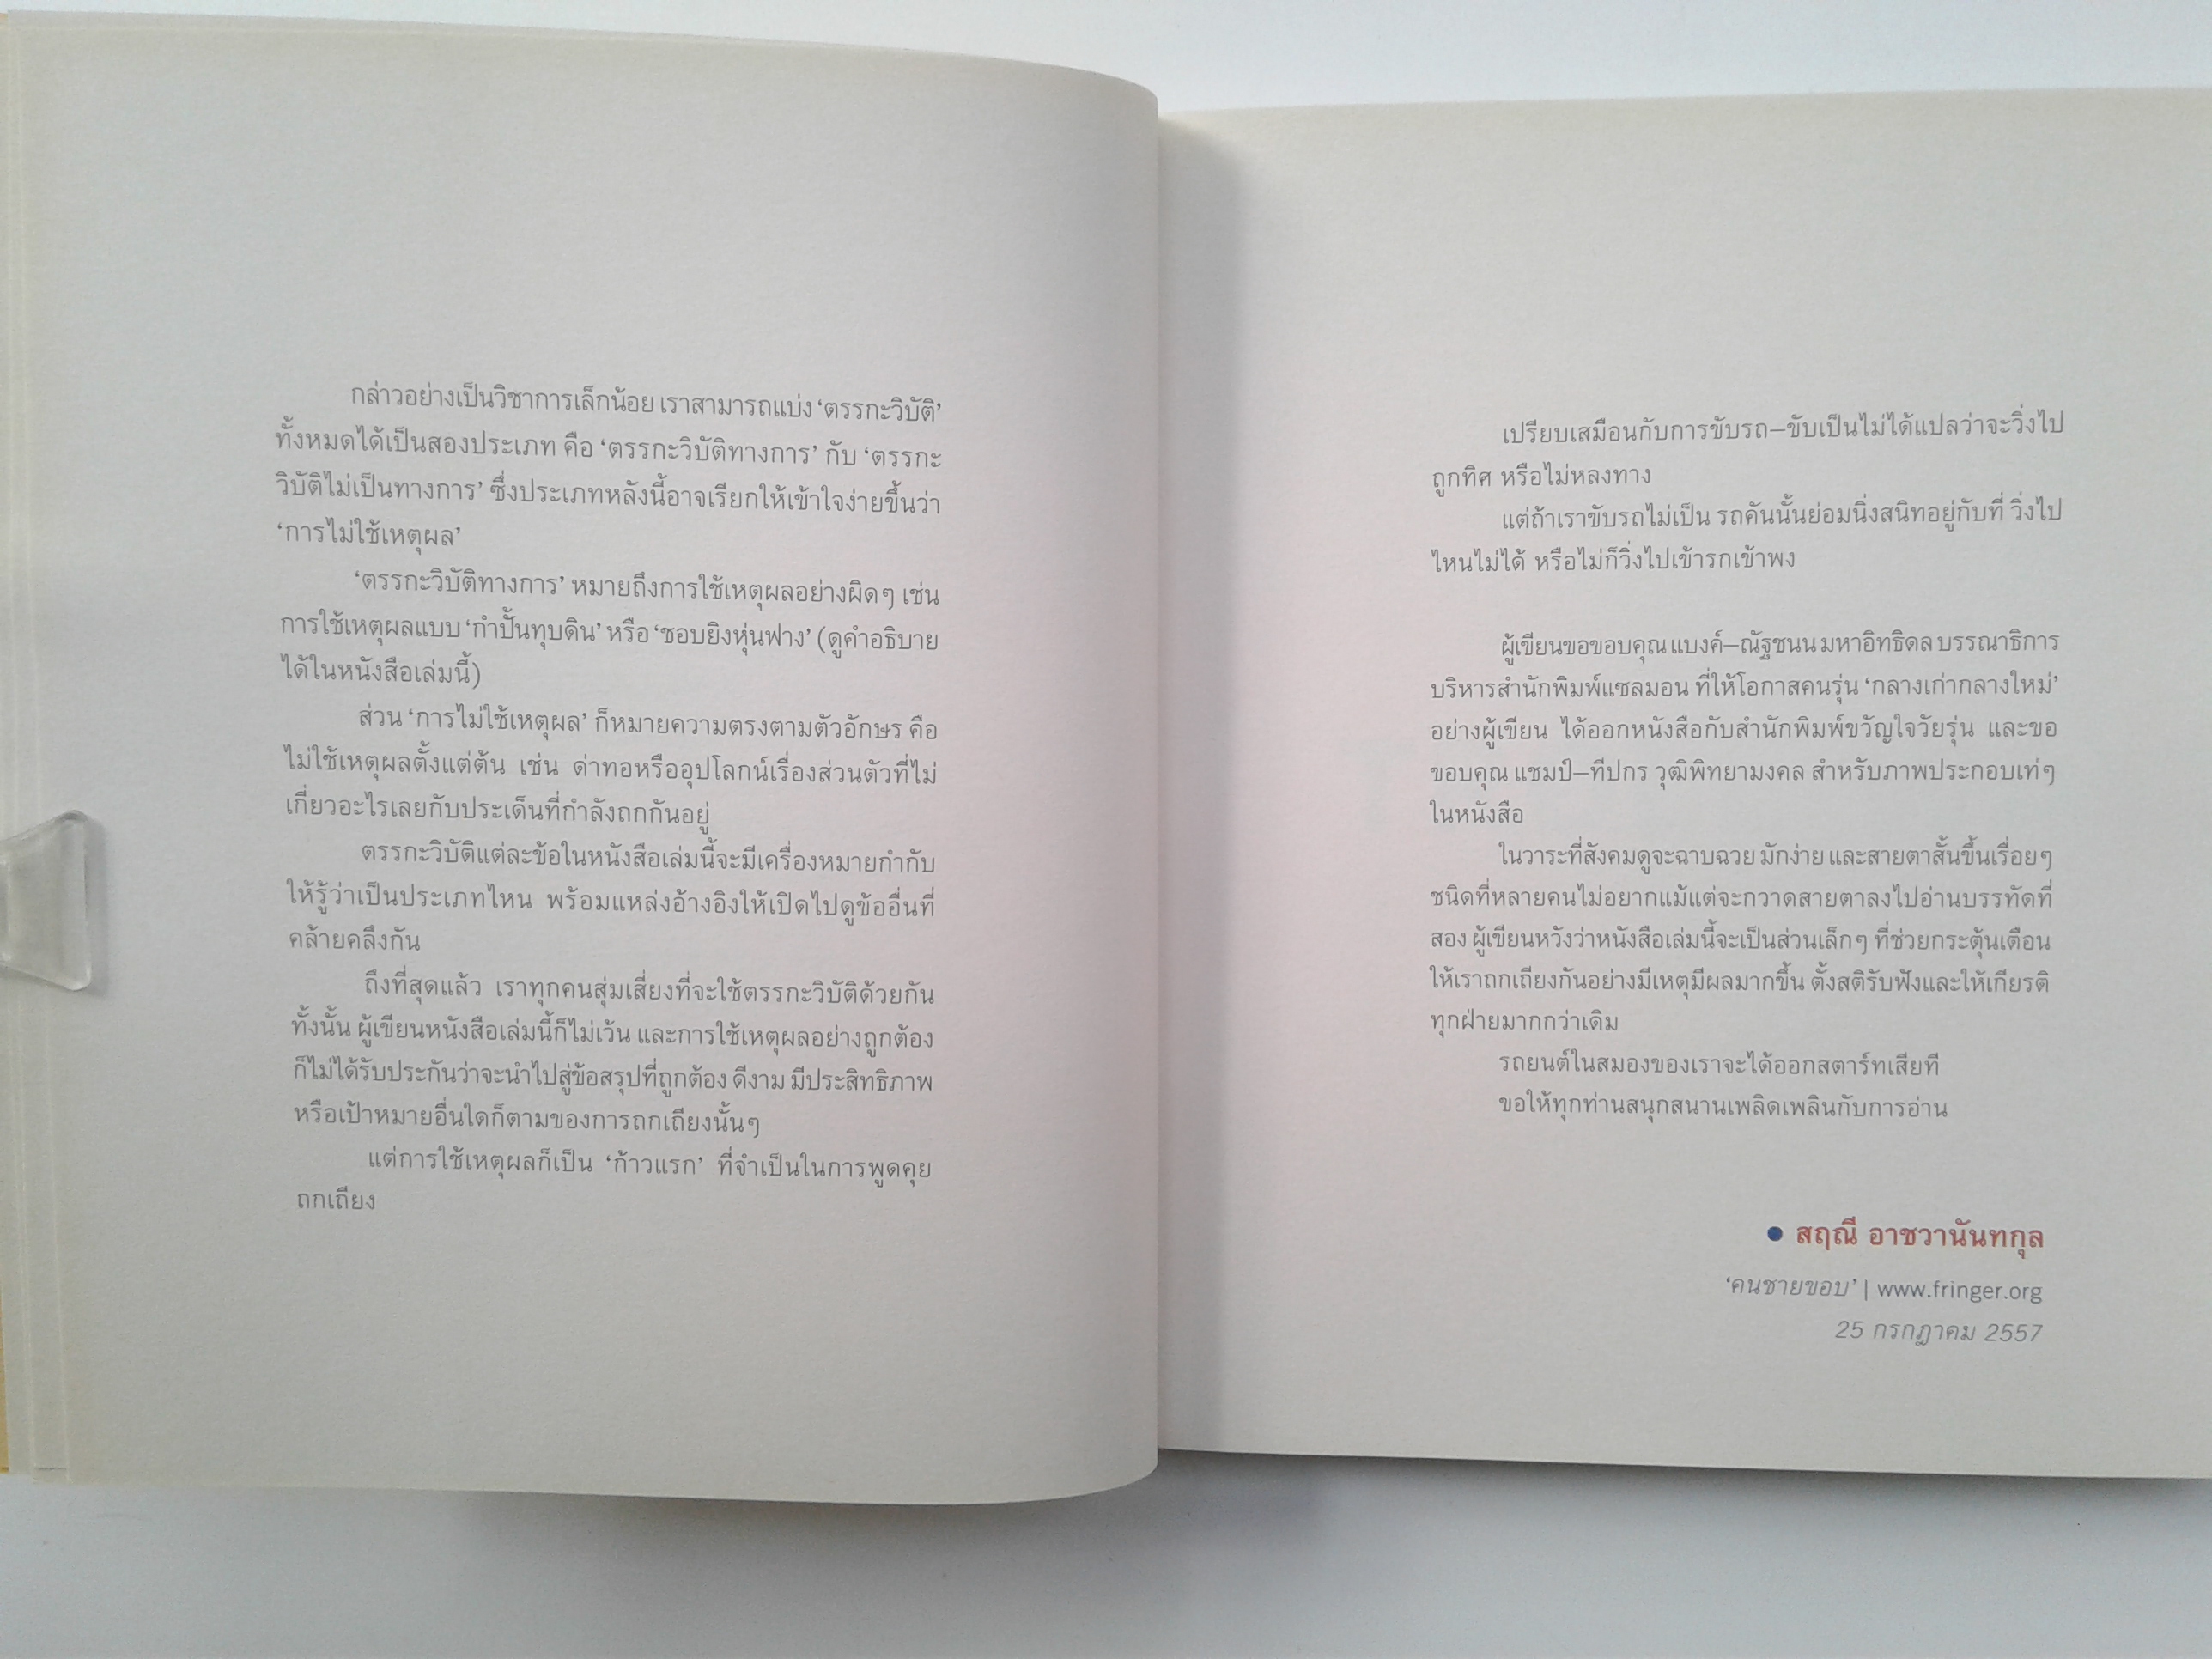 กล่าวอย่างเป็นวิชาการเล็กน้อย เราสามารถแบ่ง ‘ตรรกะวิบัติ’
ทั้งหมดได้เป็นสองประเภท คือ ‘ตรรกะวิบัติทางการ’ กับ ‘ตรรกะ
วิบัติไม่เป็นทางการ’ ซึ่งประเภทหลังนี้อาจเรียกให้เข้าใจง่ายขึ้นว่า
‘การไม่ใช้เหตุผล’
‘ตรรกะวิบัติทางการ’ หมายถึงการใช้เหตุผลอย่างผิดๆ เช่น
การใช้เหตุผลแบบ ‘กำปั้นทุบดิน’ หรือ ‘ชอบยิงหุ่นฟาง’ (ดูคำอธิบาย
ได้ในหนังสือเล่มนี้)
ส่วน ‘การไม่ใช้เหตุผล’ ก็หมายความตรงตามตัวอักษร คือ
ไม่ใช้เหตุผลตั้งแต่ต้น เช่น ด่าทอหรืออุปโลกน์เรื่องส่วนตัวที่ไม่
เกี่ยวอะไรเลยกับประเด็นที่กำลังถกกันอยู่
ตรรกะวิบัติแต่ละข้อในหนังสือเล่มนี้จะมีเครื่องหมายกำกับ
ให้รู้ว่าเป็นประเภทไหน พร้อมแหล่งอ้างอิงให้เปิดไปดูข้ออื่นที่
คล้ายคลึงกัน
ถึงที่สุดแล้ว เราทุกคนสุ่มเสี่ยงที่จะใช้ตรรกะวิบัติด้วยกัน
ทั้งนั้น ผู้เขียนหนังสือเล่มนี้ก็ไม่เว้น และการใช้เหตุผลอย่างถูกต้อง
ก็ไม่ได้รับประกันว่าจะนำไปสู่ข้อสรุปที่ถูกต้อง ดีงาม มีประสิทธิภาพ
หรือเป้าหมายอื่นใดก็ตามของการถกเถียงนั้นๆ
แต่การใช้เหตุผลก็เป็น ‘ก้าวแรก’ ที่จำเป็นในการพูดคุย
ถกเถียง
เปรียบเสมือนกับการขับรถ–ขับเป็นไม่ได้แปลว่าจะวิ่งไป
ถูกทิศ หรือไม่หลงทาง
แต่ถ้าเราขับรถไม่เป็น รถคันนั้นย่อมนิ่งสนิทอยู่กับที่ วิ่งไป
ไหนไม่ได้ หรือไม่ก็วิ่งไปเข้ารกเข้าพง
ผู้เขียนขอขอบคุณ แบงค์–ณัฐชนน มหาอิทธิดล บรรณาธิการ
บริหารสำนักพิมพ์แซลมอน ที่ให้โอกาสคนรุ่น ‘กลางเก่ากลางใหม่’
อย่างผู้เขียน ได้ออกหนังสือกับสำนักพิมพ์ขวัญใจวัยรุ่น และขอ
ขอบคุณ แชมป์–ทีปกร วุฒิพิทยามงคล สำหรับภาพประกอบเท่ๆ
ในหนังสือ
ในวาระที่สังคมดูจะฉาบฉวย มักง่าย และสายตาสั้นขึ้นเรื่อยๆ
ชนิดที่หลายคนไม่อยากแม้แต่จะกวาดสายตาลงไปอ่านบรรทัดที่
สอง ผู้เขียนหวังว่าหนังสือเล่มนี้จะเป็นส่วนเล็กๆ ที่ช่วยกระตุ้นเตือน
ให้เราถกเถียงกันอย่างมีเหตุมีผลมากขึ้น ตั้งสติรับฟังและให้เกียรติ
ทุกฝ่ายมากกว่าเดิม
รถยนต์ในสมองของเราจะได้ออกสตาร์ทเสียที
ขอให้ทุกท่านสนุกสนานเพลิดเพลินกับการอ่าน
● สฤณี อาชวานันทกุล
‘คนชายขอบ’ | www.fringer.org
25 กรกฎาคม 2557